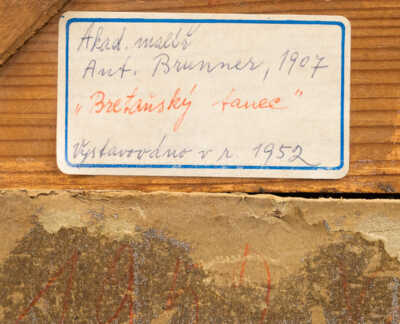 Akad. malíř
Ant. Brunner, 1907
„Bretaňský tanec“
Vystavováno v r. 1952